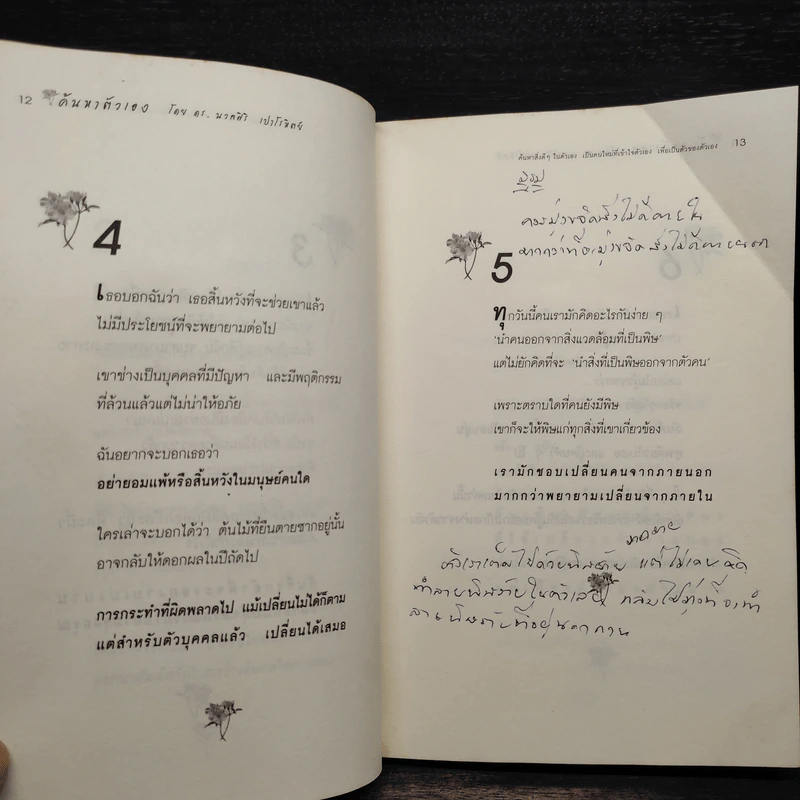 12
ค้นหาตัวเอง โดย ดร. นวลศิริ เปาโรหิตย์
4
เธอบอกฉันว่า เธอสิ้นหวังที่จะช่วยเขาแล้ว
ไม่มีประโยชน์ที่จะพยายามต่อไป
เขาช่างเป็นบุคคลที่มีปัญหา และมีพฤติกรรม
ที่ล้วนแล้วแต่ไม่น่าให้อภัย
ฉันอยากจะบอกเธอว่า
อย่ายอมแพ้หรือสิ้นหวังในมนุษย์คนใด
ใครเล่าจะบอกได้ว่า ต้นไม้ที่ยืนตายซากอยู่นั้น
อาจกลับให้ดอกผลในปีถัดไป
การกระทำที่ผิดพลาดไป แม้เปลี่ยนไม่ได้ก็ตาม
แต่สำหรับตัวบุคคลแล้ว เปลี่ยนได้เสมอ
ค้นหาสิ่งดีๆ ในตัวเอง เป็นคนใหม่ที่เข้าใจตัวเอง เพื่อเป็นตัวของตัวเอง
13
ควรมุ่งขจัดสิ่งไม่ดีภายใน
มากกว่าที่จะมุ่งขจัดสิ่งไม่ดีภายนอก
5
ทุกวันนี้คนเรามักคิดอะไรกันง่าย ๆ
'นำคนออกจากสิ่งแวดล้อมที่เป็นพิษ'
แต่ไม่ยักคิดที่จะ 'นำสิ่งที่เป็นพิษออกจากตัวคน'
เพราะตราบใดที่คนยังมีพิษ
เขาก็จะให้พิษแก่ทุกสิ่งที่เขาเกี่ยวข้อง
เรามักชอบเปลี่ยนคนจากภายนอก
มากกว่าพยายามเปลี่ยนจากภายใน
มากมาย
ตัวเราเต็มไปด้วยพิษร้าย แต่ไม่เคยคิด
ทำลายพิษร้ายในตัวเลย กลับไปมุ่งที่จะทำ
ลายพิษร้ายที่อยู่นอกกาย